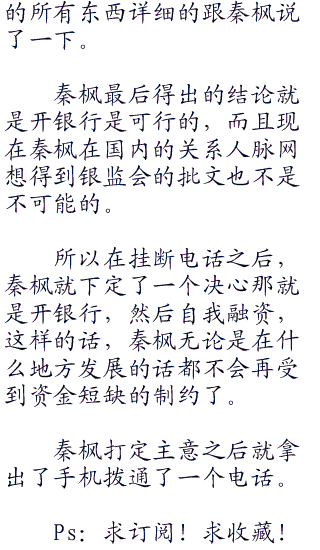 的所有东西详细的跟秦枫说
了一下。
秦枫最后得出的结论就
是开银行是可行的，而且现
在秦枫在国内的关系人脉网
想得到银监会的批文也不是
不可能的。
所以在挂断电话之后，
秦枫就下定了一个决心那就
是开银行，然后自我融资，
这样的话，秦枫无论是在什
么地方发展的话都不会再受
到资金短缺的制约了。
秦枫打定主意之后就拿
出了手机拨通了一个电话。
Ps：求订阅！求收藏！